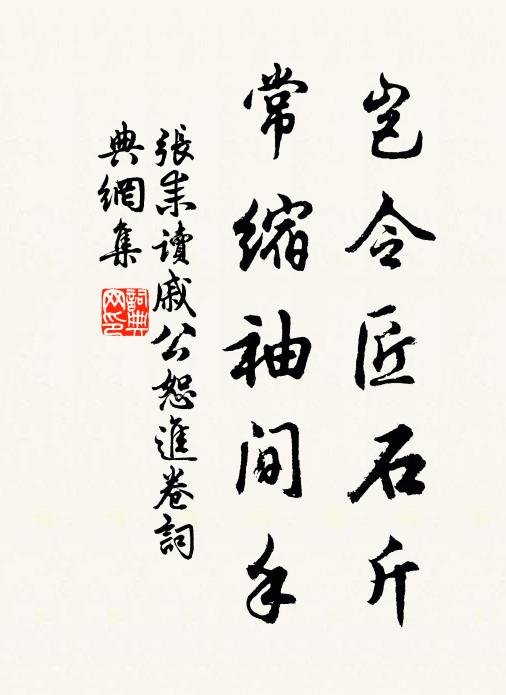 岂令匠石斤
常缩袖间手
張耒讀戚公恕進卷詞
典網集
詞典網印